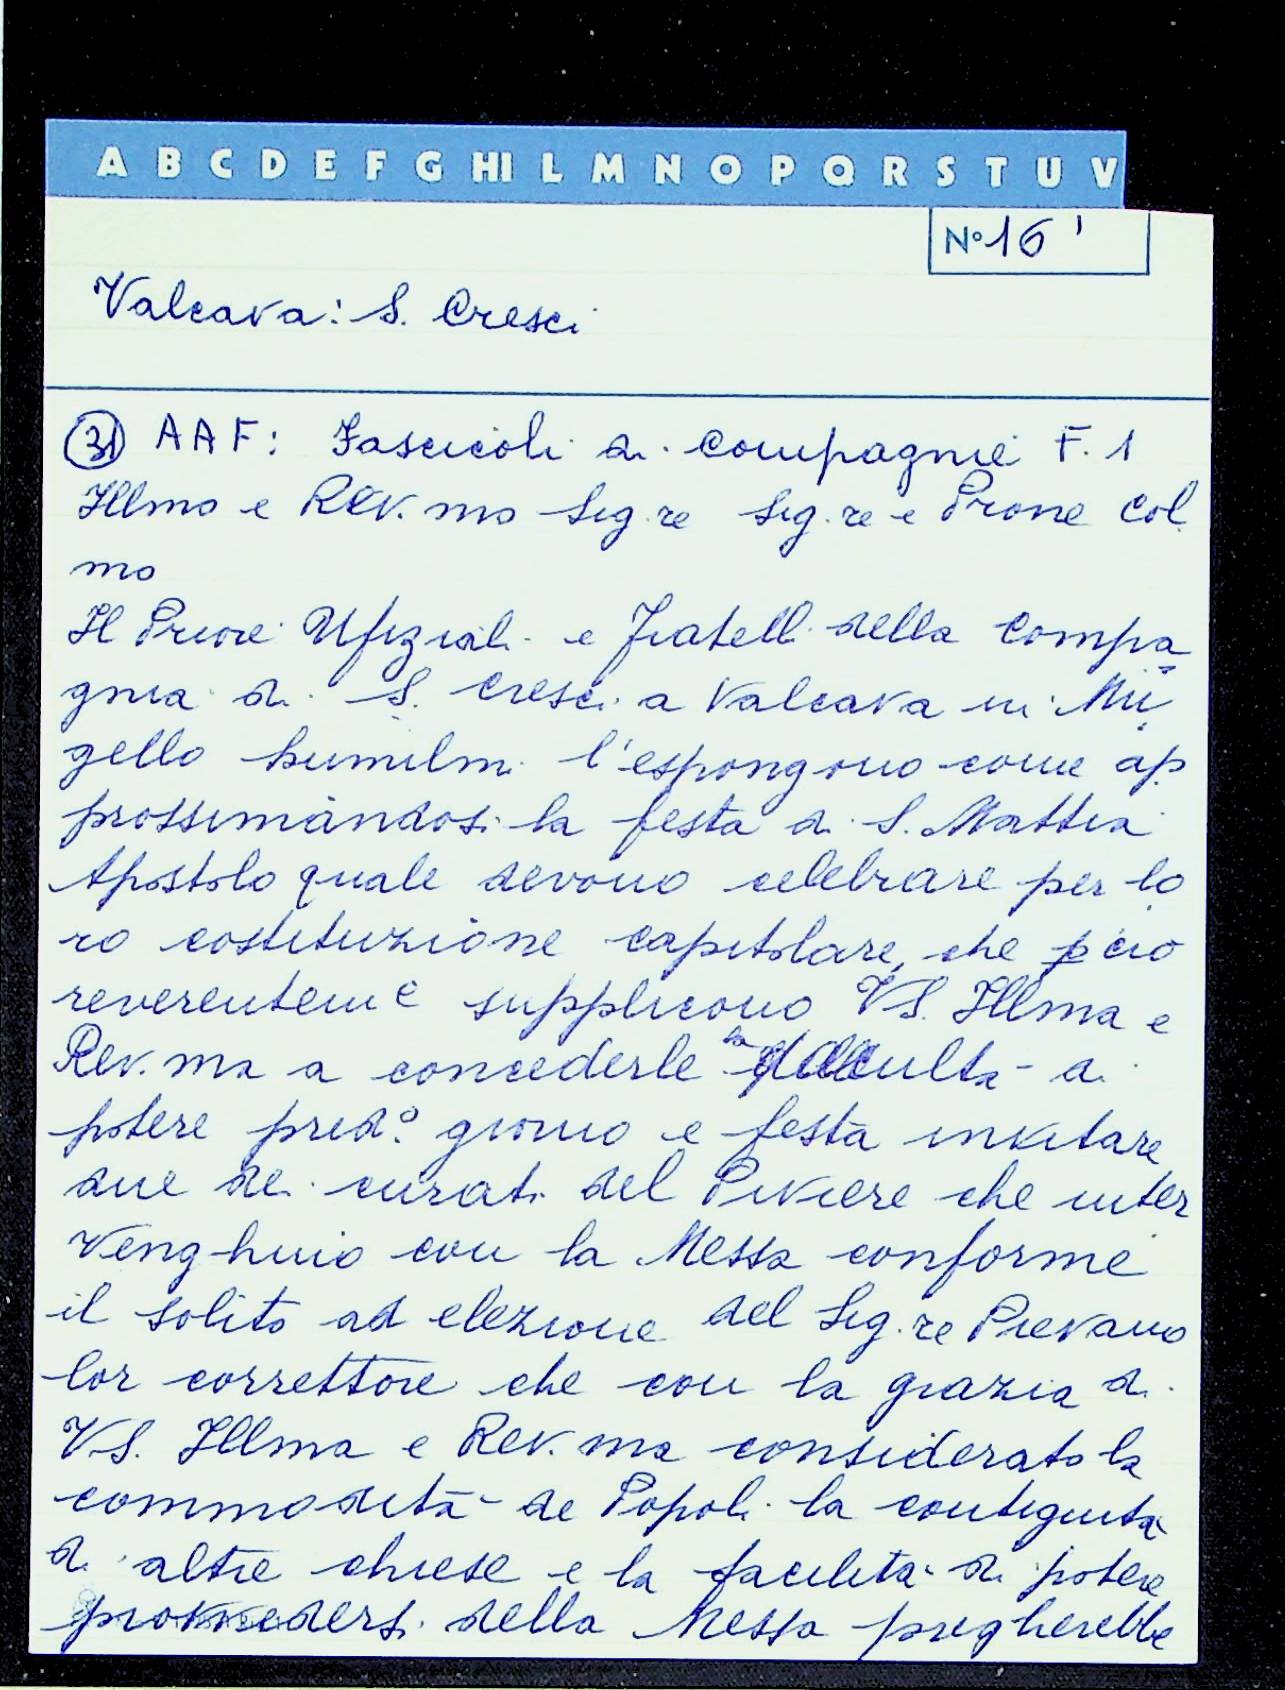 A B C D E F G HI L M N O P Q R S T U V
N° 16 '
Valcava: S. Cresci
31 AAF: Fascicoli di Compagnie F. 1
Illmo e Rev.mo Sig.re Sig.re e Prone Col
mo
Il Priore Ufiziali e Fratelli della Compa
gnia di S. Cresci a Valcava in Mu
gello humilm. l'espongono come ap
prossimandosi la festa di S. Mattia
Apostolo quale devono celebrare per lo
ro costituzione capitolare, che p ciò
reverenteme supplicono VS. Illma e
Rev.ma a concederle la facultà di
potere pred.º giorno e festa invitare
due dei curati del Piviere che inter
venghino con la Messa conforme
il solito ad elezione del Sig.re Pievano
lor correttore che con la grazia di
VS. Illma e Rev.ma considerato la
commodità de Popoli la contiguità
di altre chiese e la facilità di potere
provvedersi della Messa pregherebbe